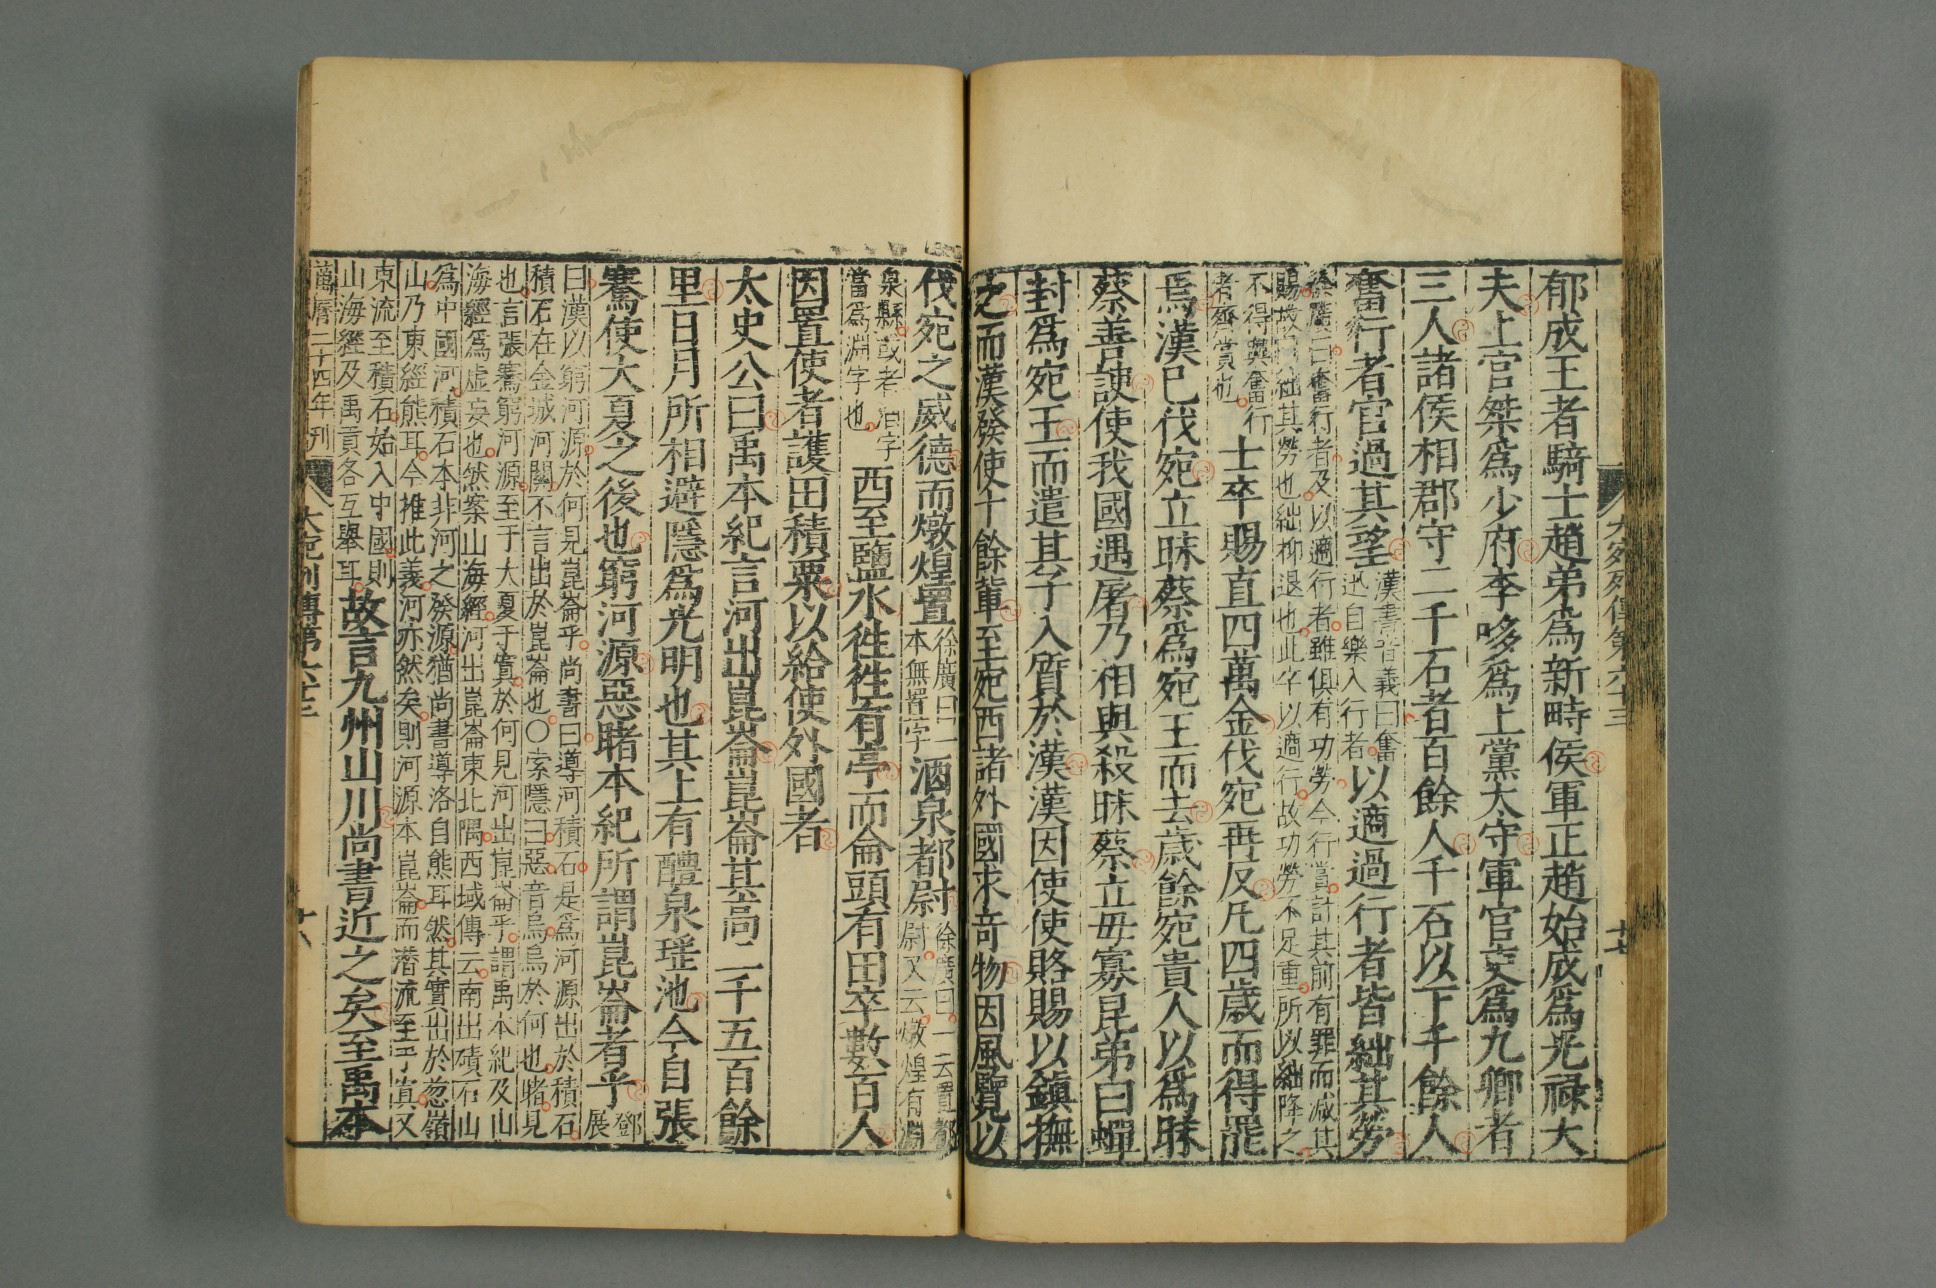 大宛列傳第六十三
十七
郁成王者騎士趙弟爲新畤侯軍正趙始成爲光祿大
夫上官桀爲少府李哆爲上黨太守軍官吏爲九卿者
三人諸侯相郡守二千石者百餘人千石以下千餘人
奮行者官過其望
漢書音義曰奮
迅自樂入行者
以適過行者皆絀其勞
徐廣曰奮行者及以適行者雖俱有功勞今行賞計其前有罪而減其
賜故曰絀其勞也絀抑退也此卒以適行故功勞不足重所以絀降之
不得與奮行
者齊賞也
士卒賜直四萬金伐宛再反凡四歲而得罷
焉漢已伐宛立昧蔡爲宛王而去歲餘宛貴人以爲昧
蔡善諛使我國遇屠乃相與殺昧蔡立毋寡昆弟曰蟬
封爲宛王而遣其子入質於漢漢因使使賂賜以鎮撫
之而漢發使十餘輩至宛西諸外國求奇物因風覽以
伐宛之威德而燉煌置
徐廣曰一
本無置字
酒泉都尉
徐廣曰一云置都
尉又云燉煌有淵
泉縣或者酒字
當爲淵字也
西至鹽水徃徃有亭而侖頭有田卒數百人
因置使者護田積粟以給使外國者
太史公曰禹本紀言河出崑崙崑崙其高二千五百餘
里日月所相避隱爲光明也其上有醴泉瑤池今自張
騫使大夏之後也窮河源惡睹本紀所謂崑崙者乎
鄧
展
曰漢以窮河源於何見崑崙乎尚書曰導河積石是爲河源出於積石
積石在金城河關不言出於崑崙也〇索隱曰惡音烏烏於何也睹見
也言張騫窮河源至于大夏于寘於何見河出崑崙乎謂禹本紀及山
海經爲虛妄也然案山海經河出崑崙東北隅西域傳云南出磧石山
爲中國河積石本非河之發源猶尚書導洛自熊耳然其實出於蔥嶺
山乃東經熊耳今推此義河亦然矣則河源本崑崙而潛流至于寘又
東流至積石始入中國則
山海經及禹貢各互舉耳
故言九州山川尚書近之矣至禹本
萬曆二十四年刊
大宛列傳第六十三
十八